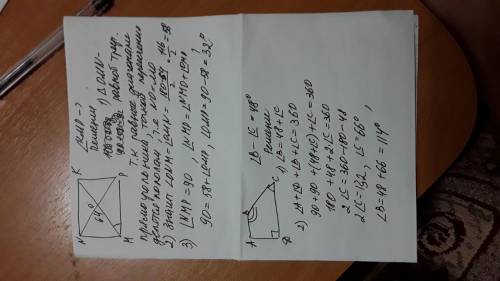 ∠KMP - ?
Решение
1) △ОМN -
равноб. треуг.
т.к равные диагонали
прямоугольника точкой пересечения
делятся пополам, т.е NO=MO
2) Значит ∠ONM = ∠OMN = 180-64/2 = 116/2 = 58
3) ∠NMP = 90, ∠NMP = ∠NMO + ∠OMP
90 = 58 + ∠OMP, ∠OMP = 90-58 = 32°
N
K
64°
M
P
∠B - ∠C = 48°
Решение
1) ∠B = 48+∠C
2) ∠A+∠D+∠B+∠C = 360
90 + 90 + (48+∠C) + ∠C = 360
180 + 48 + 2∠C = 360
2∠C = 360-180-48
2∠C = 132, ∠C = 66°
∠B = 48 + 66 = 114°
A
B
C